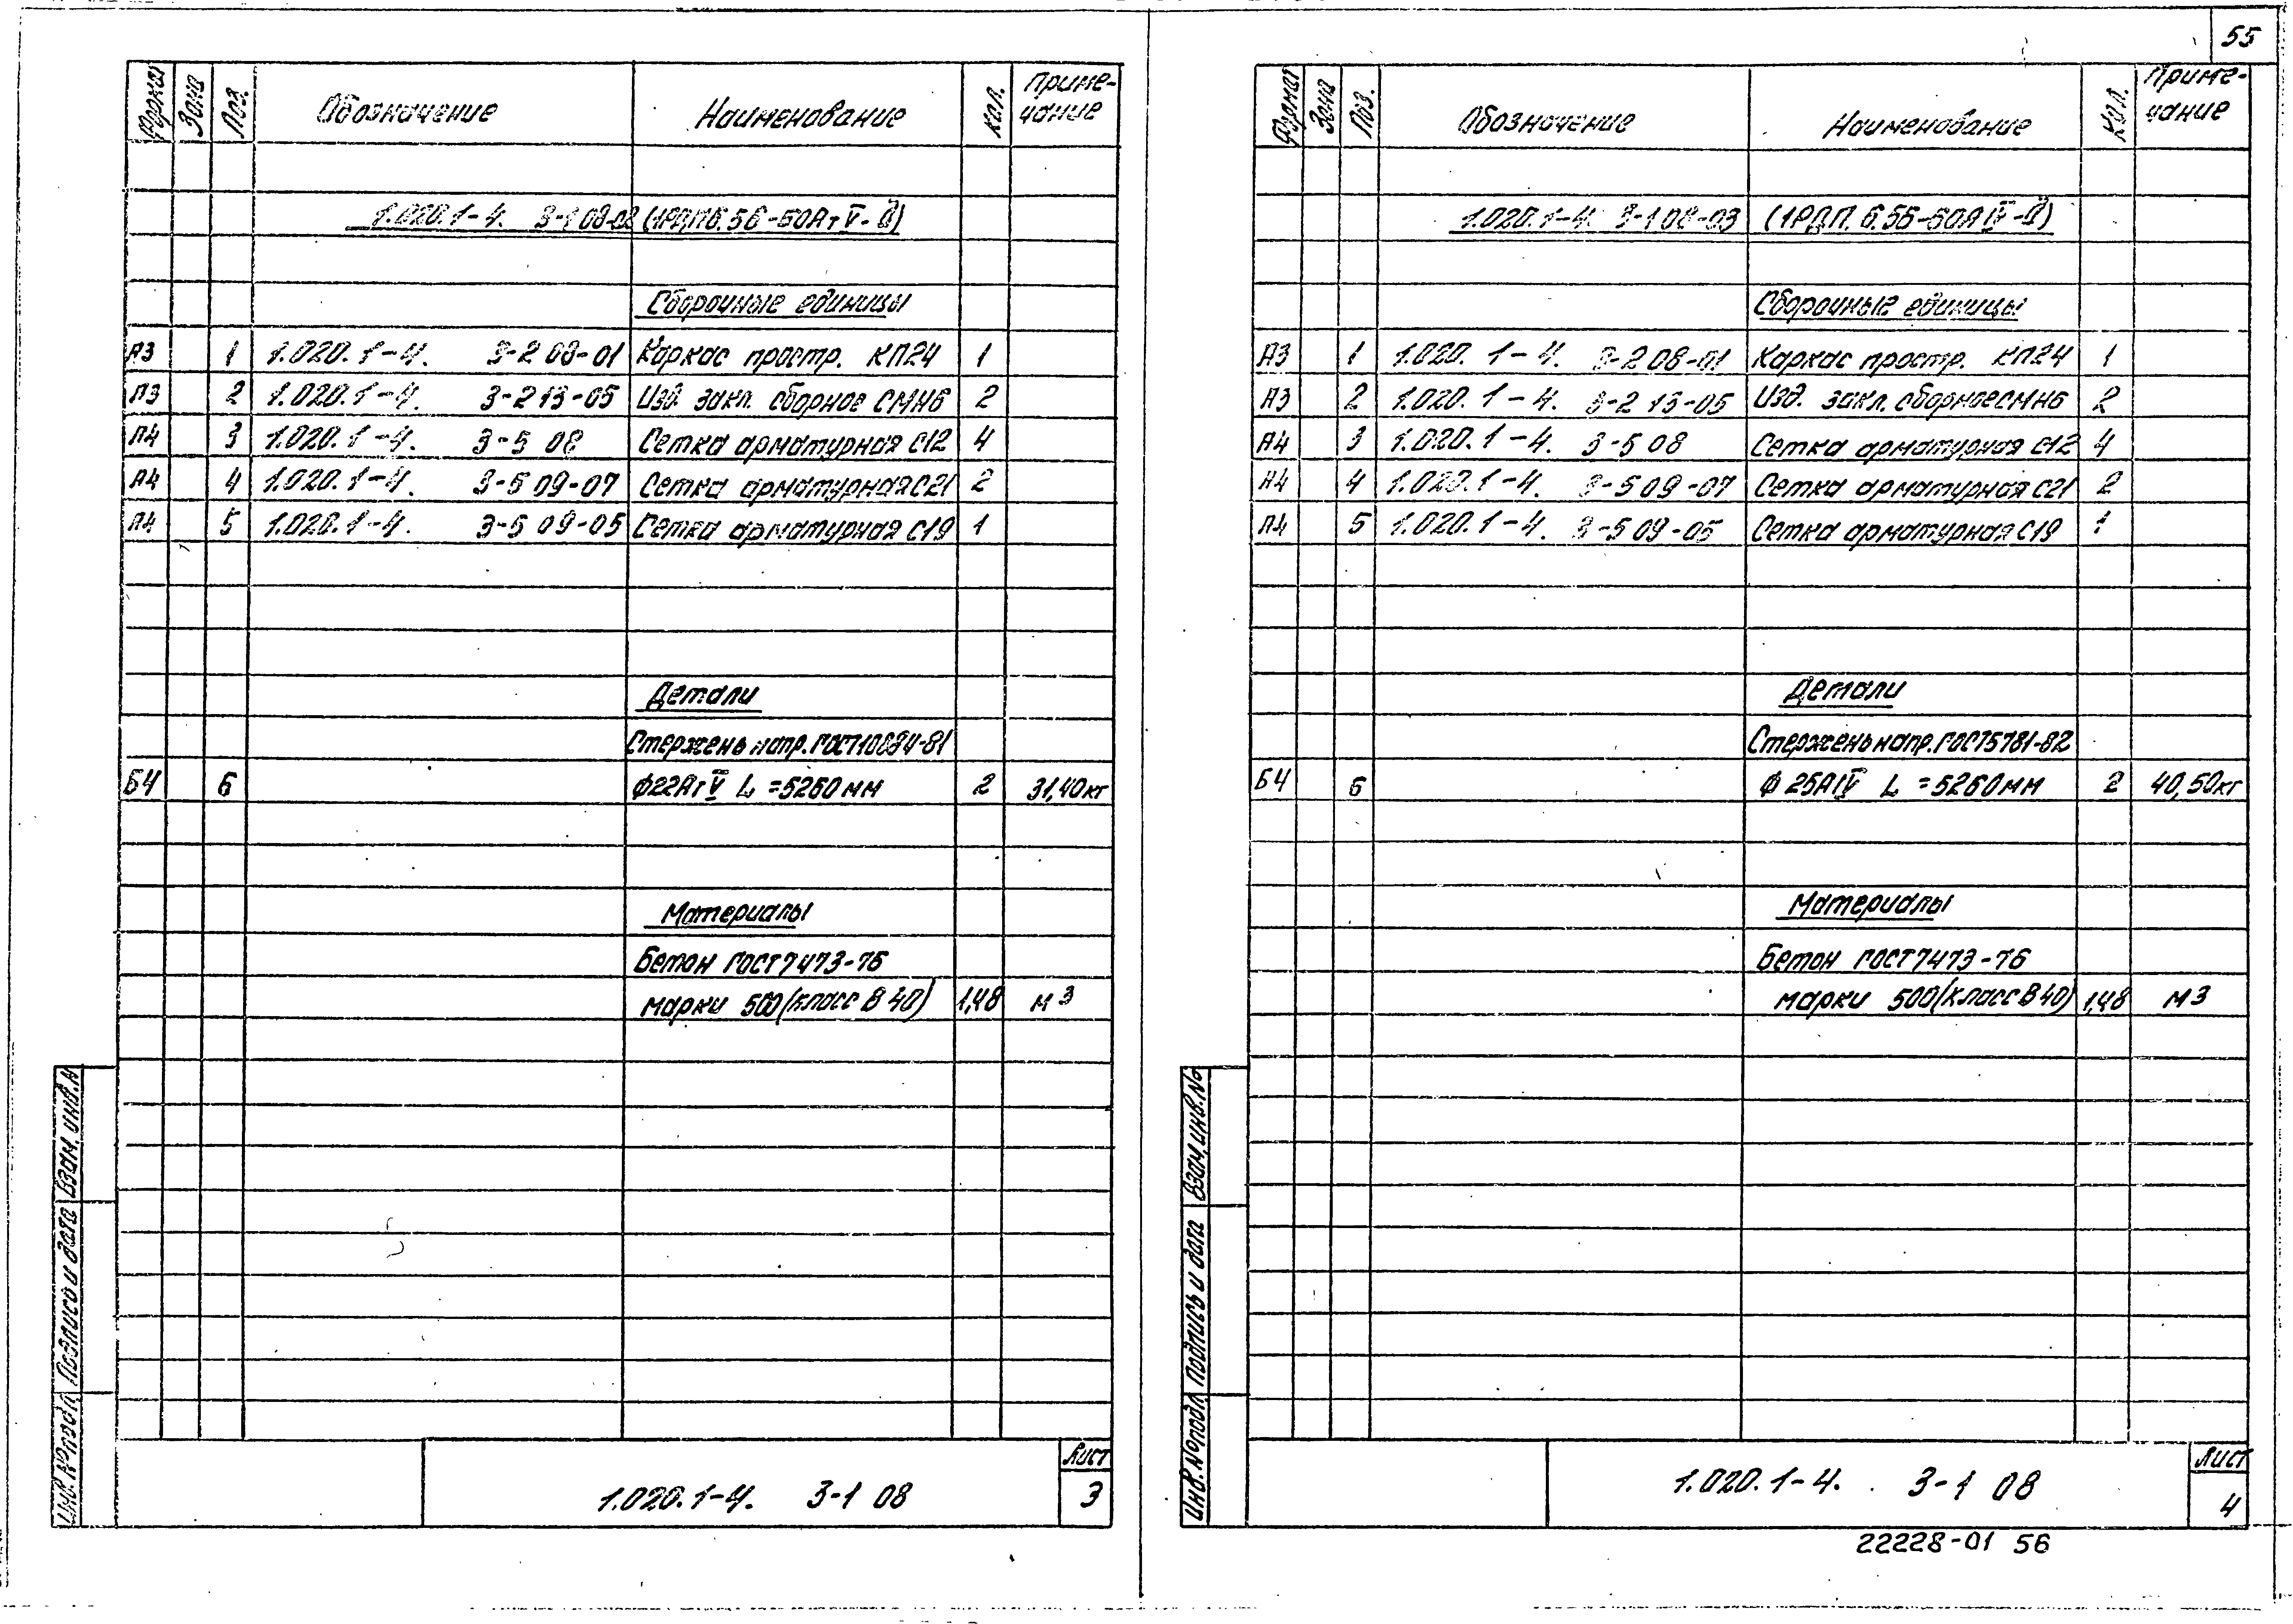 55
Формат Зона Поз. Обозначение Наименование Кол. Приме-
чание
1.020.1-4. 3-1 08-02 (1РДП6.56-50АтV-П)
Сборочные единицы
А3 1 1.020.1-4. 3-2 08-01 Каркас простр. КП24 1
А3 2 1.020.1-4. 3-2 13-05 Изд. закл. сборное СМН6 2
А4 3 1.020.1-4. 3-5 08 Сетка арматурная С12 4
А4 4 1.020.1-4. 3-5 09-07 Сетка арматурная С21 2
А4 5 1.020.1-4. 3-5 09-05 Сетка арматурная С19 1
Детали
Стержень напр. ГОСТ10884-81
БЧ 6 ф22АтV L=5260мм 2 31,40кг
Материалы
Бетон ГОСТ7473-76
марки 500 (класс В40) 1,48 м3
Инв.№подл Подпись и дата Взам. инв.№
1.020.1-4. 3-1 08
Лист
3
Формат Зона Поз. Обозначение Наименование Кол. Приме-
чание
1.020.1-4. 3-1 08-03 (1РДП.6.56-50АIV-П)
Сборочные единицы
А3 1 1.020.1-4. 3-2 08-01 Каркас простр. КП24 1
А3 2 1.020.1-4. 3-2 13-05 Изд. закл. сборное СМН6 2
А4 3 1.020.1-4. 3-5 08 Сетка арматурная С12 4
А4 4 1.020.1-4. 3-5 09-07 Сетка арматурная С21 2
А4 5 1.020.1-4. 3-5 09-05 Сетка арматурная С19 1
Детали
Стержень напр. ГОСТ5781-82
БЧ 6 ф25АIV L=5260мм 2 40,50кг
Материалы
Бетон ГОСТ7473-76
марки 500 (класс В40) 1,48 м3
Инв.№подл Подпись и дата Взам.инв.№
1.020.1-4. 3-1 08
Лист
4
22228-01 56